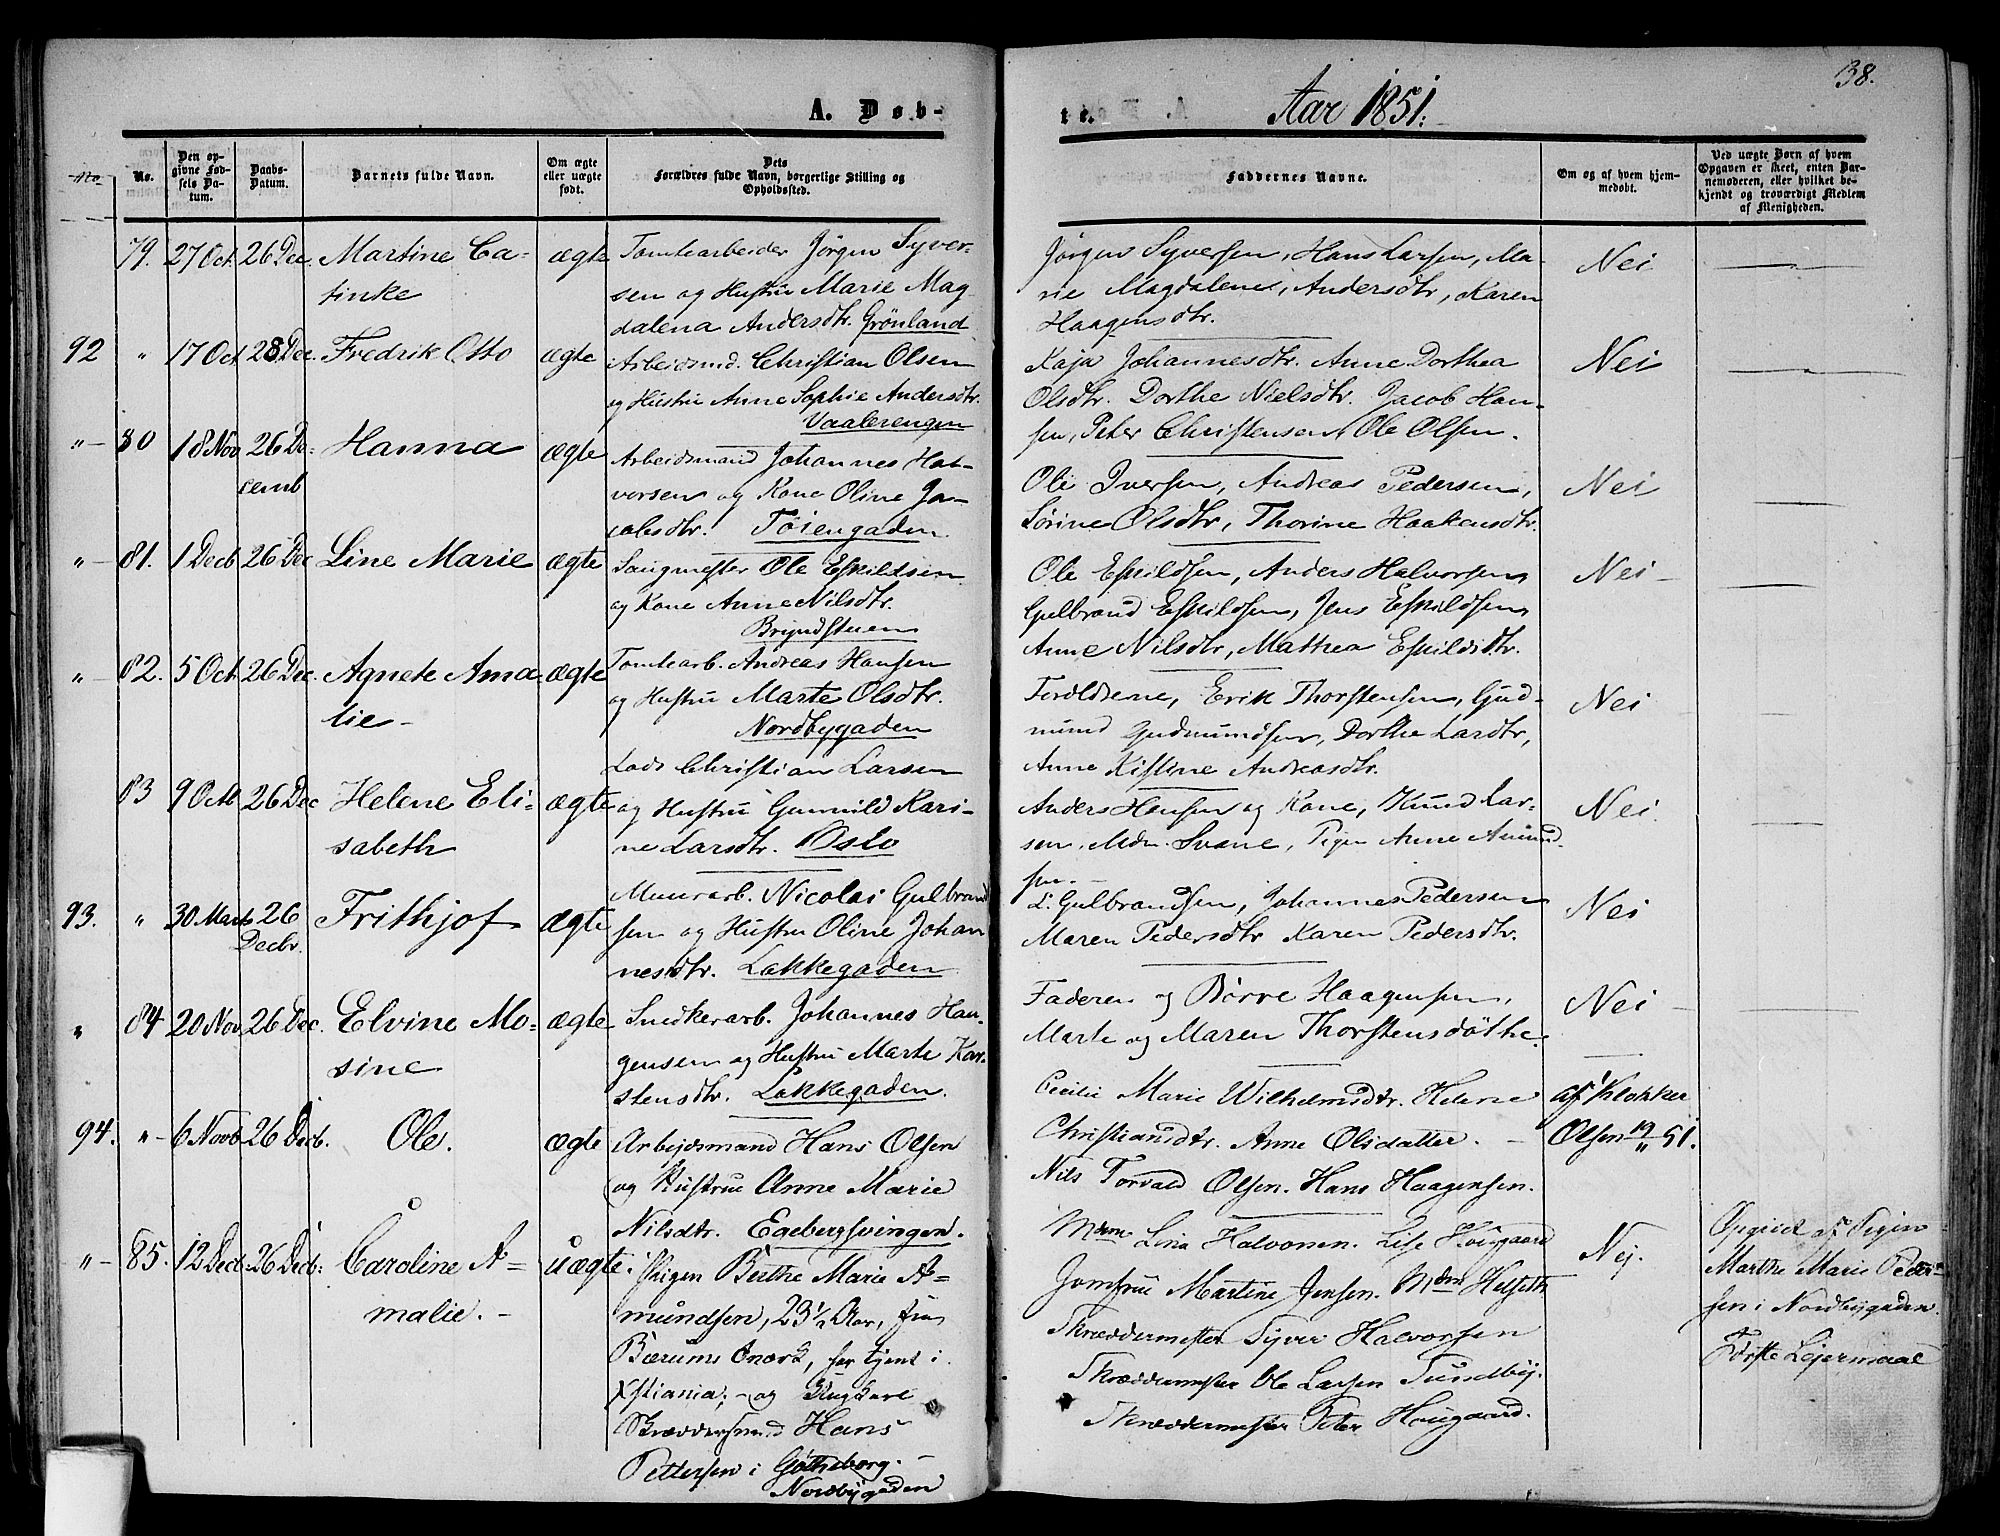 38.
A. Døb-
te.
Aar 1851.
No.
No.
Den op-
givne Fød-
sels Da-
tum.
Daabs-
Datum.
Barnets fulde Navn.
Om ægte
eller uægte
født.
Dets
Forældres fulde Navn, borgerlige Stilling og
Opholdssted.
Faddernes Navne.
Om og af hvem hjem-
medøbt.
Ved uægte Børn af hvem
Opgaven er skeet, enten Bar-
nemoderen, eller hvilket be-
kjendt og troværdigt Medlem
af Menigheden.
79. 27 Oct. 26 Dec. Martine Ca-
tinke
ægte
Tomtearbeider Jørgen Syver-
sen og Hustru Marie Mag
dalena Andersdtr. Grønland
Jørgen Syversen, Hans Larsen, Ma-
rie Magdalene, Andersdtr, Karen
Haagensdtr.
Nei
92 " 17 Oct 28 Dec. Fredrik Otto
ægte
Arbeidsmd. Christian Olsen
og Hustru Anne Sophie Andersdtr.
Vaalerengen
Kaja Johannesdtr. Anne Dorthea
Olsdtr. Dorthe Nielsdtr. Jacob Han-
sen, Peter Christensen, Ole Olsen.
Nei
" 80 18 Nov 26 De-
cemb
Hanna
ægte
Arbeidsmand Johannes Hal-
vorsen og Kone Oline Ja-
cobsdtr. Töiengaden
Ole Iversen, Andreas Pedersen,
Sørine Olsdtr, Thorine Haakensdtr.
Nei
" 81. 1 Decb 26 Dec Line Marie
ægte
Saugmester Ole Eskildsen
og Kone Anne Nilsdtr.
Bryndstuen
Ole Eskildsen, Anders Halvorsen,
Gulbrand Eskildsen, Jens Eskildsen,
Anne Nilsdtr, Mathea Eskildsdtr.
Nei
" 82. 5 Oct 26 Dec. Agnete Ama
lie
ægte
Tomtearb. Andreas Hansen
og Hustru Marte Olsdtr.
Nordbygaden
Foreldrene, Erik Thorstensen, Gud-
mund Gudmundsen, Dorthe Larsdtr,
Anne Kistine Andreasdtr.
Nei
83 9 Octb 26 Dec Helene Eli-
sabeth
ægte
Lods Christian Larsen
og Hustru Gunnild Kari-
ne Larsdtr. Oslo
Anders Hansen og Kone, Knud Lar-
sen, Mdm. Svane, Pigen Anne Amund
sen.
Nei
93. " 30 Marts 26
Decbr.
Frithjof
ægte
Muurarb. Nicolai Gulbrand
sen og Hustru Oline Johan
nesdtr. Lakkegaden
L. Gulbrandsen, Johannes Pedersen
Maren Pedersdtr Karen Pedersdtr.
Nei
" 84 20 Nov. 26 Dec. Elvine Mo-
sine
ægte
Snedkerarb. Johannes Han-
gensen og Hustru Marte Kar-
stensdtr. Lakkegaden.
Faderen og Börre Haagensen,
Marte og Maren Thorstensdötre.
Nei
94. " 6 Novb 26 Decb. Ole.
ægte
Arbejdsmand Hans Olsen
og Hustrue Anne Marie
Nilsdtr. Egebergsvingen.
Cecilie Marie Wilhelmsdtr. Helene
Christiansdtr. Anne Olsdatter.
Nils Torvald Olsen. Hans Haagensen.
af Klokker
Olsen 19/11 51.
" 85. 12 Decb. 26 Decb: Caroline A-
malie.
uægte
Pigen Berthe Marie A-
mundsen, 23 1/2 Aar, fra
Bærums Værk, har tjent i
Xstiania; og Ungkarl
Skræddersvend Hans
Pettersen i Gøtheborg.
Nordbygaden
Mdm Lina Halvorsen. Lise Hougaard
Jomfrue Martine Jensen. Mdm Helseth
Skræddermester Syver Halvorsen
Skræddermester Ole Larsen Sundbye.
Skræddermester Peter Hougaard.
Nej.
Opgivet af Pigen
Marthe Marie Peder-
sen i Nordbygaden.
Første Lejermaal